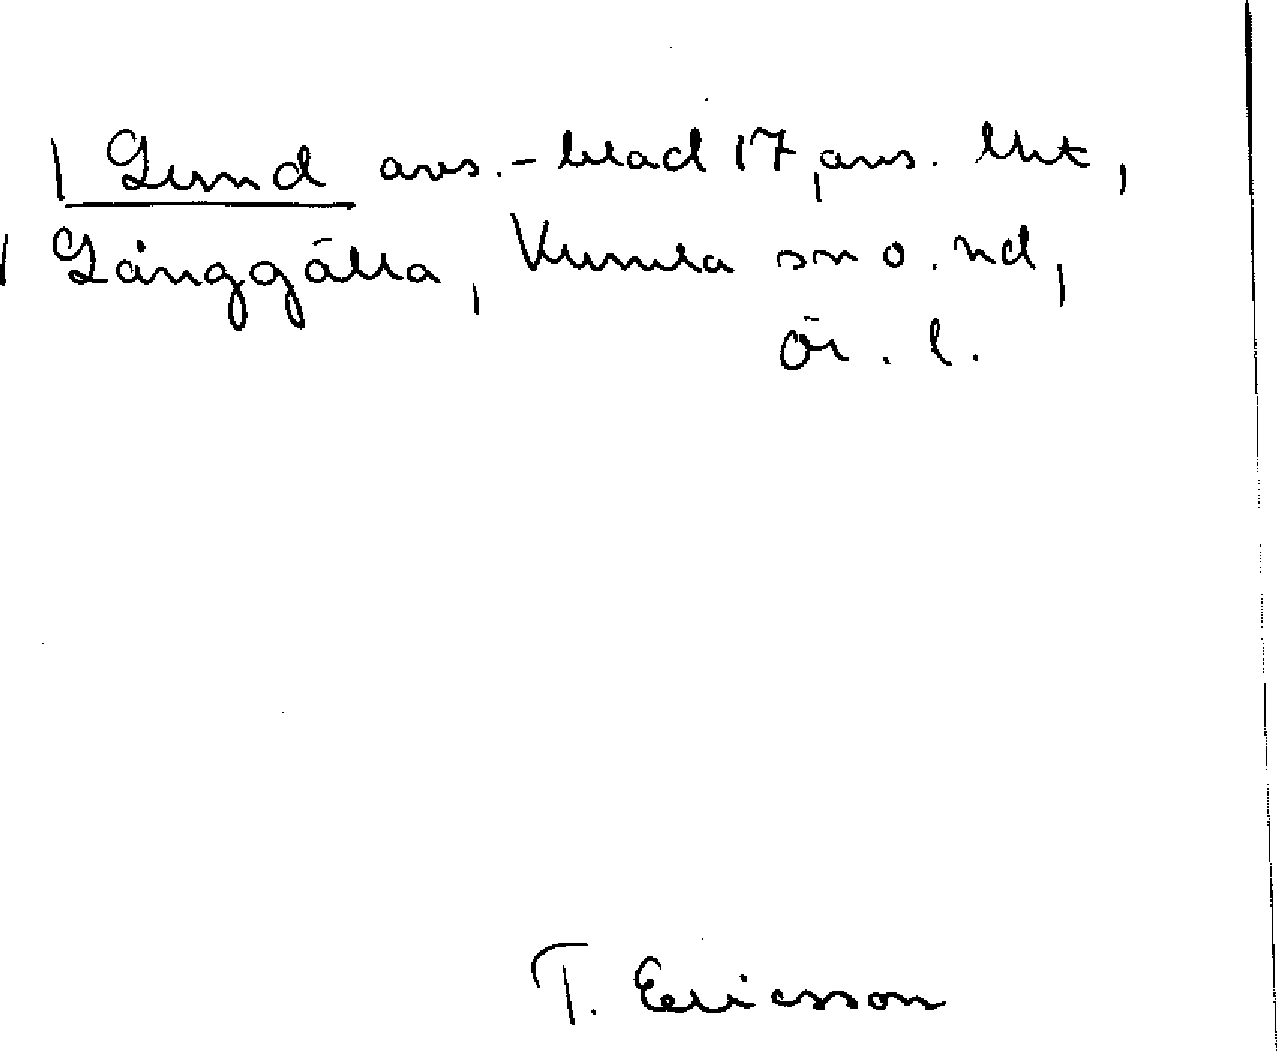 Lund avs.-blad 17, avs. lht,
Långgälla, Kumla sn o. hd,
Ör. l.
T. Ericsson